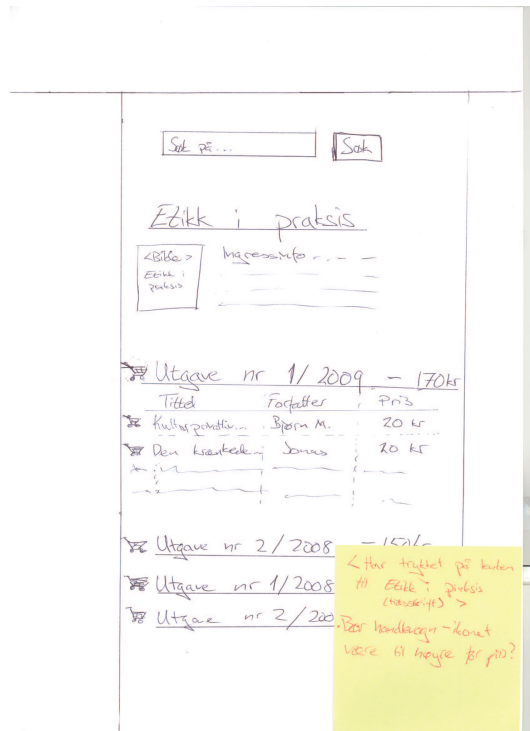 Søk på...
Søk
Etikk i praksis
<Bilde>
Etikk i
praksis
Ingressinfo
Utgave nr 1/2009 - 170kr
Tittel Forfatter Pris
Bjørn M. 20 kr
Den krenkede Jonas 20 kr
Utgave nr 2/2008 - 150kr
Utgave nr 1/2008
Utgave nr 2/200
<Har trykket på
til Etikk i praksis
(tidsskrift) >
. Bør handlevogn-ikonet
være til høyre før pris?